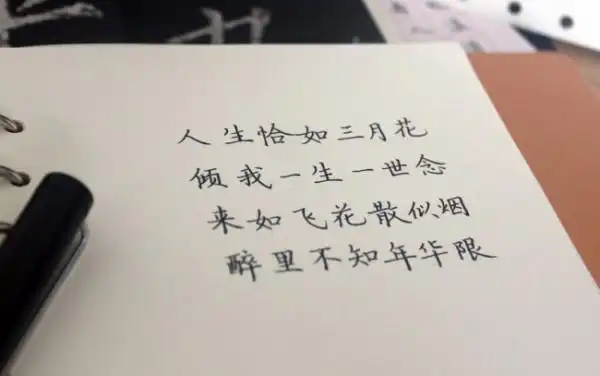 人生恰如三月花
倾我一生一世念
来如飞花散似烟
醉里不知年华限